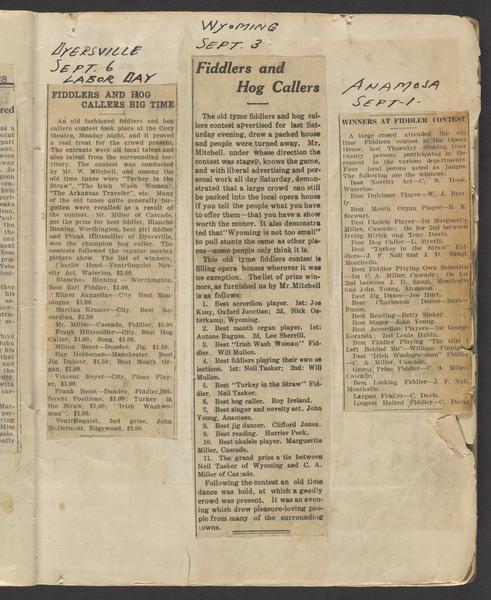 DYERSVILLE
SEPT. 6
LABOR DAY
FIDDLERS AND HOG
CALLERS BIG TIME
An old fashioned fiddlers and hog
callers contest took place at the Cozy
theatre, Monday night, and it proved
a real treat for the crowd present.
The entrants were all local talent and
also talent from the surrounding ter-
ritory. The contest was conducted
by Mr. W. Mitchell, and among the
old time tunes were "Turkey in the
Straw", "The Irish Wash Woman",
"The Arkansas Traveler", etc. Many
of the old tunes quite generally for-
gotten were recalled as a result of
the contest. Mr. Miller of Cascade,
got the prize for best fiddler, Blanche
Binning, Worthington, best girl fiddler
and Frank Hittenmiller of Dyersville,
was the champion hog caller. The
contests followed the regular moving
picture show. The list of winners.
Charlie Hood—Ventriloquist Nov-
elty Act, Waterloo, $3.00.
Blanche Binning — Worthington,
Best Girl Fiddler, $1.00.
Elmer Augustine—City Best Mon-
ologue. $1.00.
Martina Kramer—City. Best Ac-
cordian, $1.50
Mr. Miller—Cascade, Fiddler, $5.00
Frank Hittenmiller—City. Best Hog
Caller, $1.00; Song, $1.00.
Milton Baser—Dundee, Jig. $1.50.
Ray Heideman—Manchester. Best
Jig Dancer, $1.50; Best Mouth Or-
gan, $1.00.
Vincent Meyer—City, Piano Play-
er, $1.00.
Frank Beset—Dundee, Fiddler, Dif-
ferent Positions, $1.00; Turkey in
the Straw, $1.00; 'Irish Washwo-
man", $1.00.
Ventriloquist, 2nd prize, John
McDermott, Edgewood, $2.00.
WYOMING
SEPT. 3
Fiddlers and
Hog Callers
The old tyme fiddlers and hog cal-
lers contest advertised for last Sat-
urday evening, drew a packed house
and people were turned away. Mr.
Mitchell, under whose direction the
contest was staged, knows the game,
and with liberal advertising and per-
sonal work all day Saturday, demon-
strated that a large crowd can still
be packed into the local opera house
if you tell the people what you have
to offer them—that you have a show
worth the money. It also demonstra
ted that "Wyoming is not too small"
to pull stunts the same as other pla-
ces—some people only think it is.
This old tyme fiddlers contest is
filling opera houses wherever it was
an exception. The list of prize win-
ners, as furnished us by Mr. Mitchell
is as follows:
1. Best accordion player. 1st: Joe
Kusy, Oxford Junction; 2d, Nick Os-
terkamp, Wyoming.
2. Best mouth organ player. 1st:
Antone Bagus. 2d. Lee Sherrill.
3. Best "Irish Wash Woman" Fid-
dler. Will Mullen.
4. Best fiddlers playing their own se
lections. 1st: Neil Tasker; 2nd: Will
Mullen.
5. Best "Turkey in the Straw" Fid-
dler, Neil Tasker.
6. Best hog caller. Roy Ireland.
7. Best singer and novelty act. John
Young, Anamosa.
8. Best jig dancer. Clifford Jones.
9. Best reading. Harrier Peck.
10. Best ukelele player. Marguerite
Miller, Cascade.
11. The grand prize a tie between
Neil Tasker of Wyoming and C. A.
Miller of Cascade.
Following the contest an old time
dance was held, at which a goodly
crowd was present. It was an even-
ing which drew pleasure-loving peo-
ple from many of the surrounding
towns.
ANAMOSA
SEPT-1-
WINNERS AT FIDDLER CONTEST
A large crowd attended the old
time Fiddlers contest at the Opera
House, last Thursday evening. Over
twenty persons participating in the
contest in the various departments.
Four local people acted as judges.
The following are the winners:
Best Novelty Act—C. R. Hook,
Waterloo.
Best Dulcimer Player—W. J. Byer-
ly.
Best Mouth Organ Player—R. S.
Stewart.
Best Ukelele Player—1st Marguerite
Miller, Cascade; tie for 2nd between
Irving and Tony Davis.
Best Hog Caller—L. Byerly.
Best "Turkey in the Straw" Fid-
dlers—J. F. Noll and J. D. Saudl,
Monticello.
Best Fiddler Playing Own Selection
—1st C. A. Miller, Cascade; tie for
2nd between J. D. Saudl, Monticello
and John Young, Anamosa.
Best Jig Dance—Joe Hurt.
Best Charleston Dance—
Dunce.
Best Reading—Betty Sinker.
Best Singer—John Young.
Best Accordion Players—1st George
Koranda; 2nd Louis Holda.
Best Fiddler Playing "The Girl I
Left Behind Me"—William Finnigan
Best "Irish Washerwoman" Fiddler
—C. A. Miller, Cascade.
Grand Prize Fiddler—C. A. Miller,
Cascade.
Best Looking Fiddler—J. F. Noll,
Monticello.
Largest Fiddler—C. Davis.
Longest Haired Fiddler—C. Davis